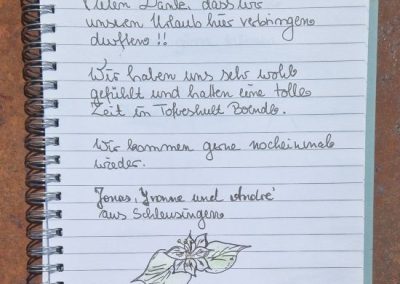 Vielen Danke, dass wir
unseren Urlaub hier verbringen
durften !!
Wir haben uns sehr wohl
gefühlt und hatten eine tolle
Zeit in Tofveshult Boende.
Wir kommen gerne nocheinmal
wieder.
Jonas, Yvonne und André
aus Schleusingen